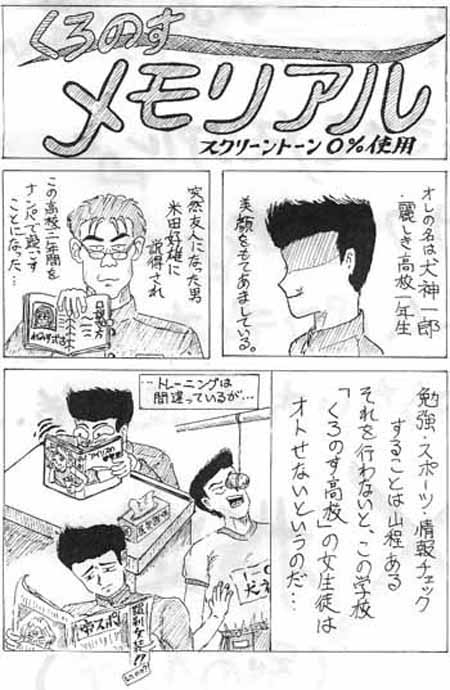 くろのす
メモリアル
スクリーントーン0%使用
オレの名は犬神一郎
麗しき高校一年生
美顔をもてあましている。
突然友人になった男
米田好雄に
説得され
この高校三年間を
ナンパで過ごす
ことになった…
勉強・スポーツ・情報チェック
することは山程ある
それを行わないと、この学校
「くろのす高校」の女生徒は
オトせないというのだ…
…トレーニングは
間違っているが…
帝スポ